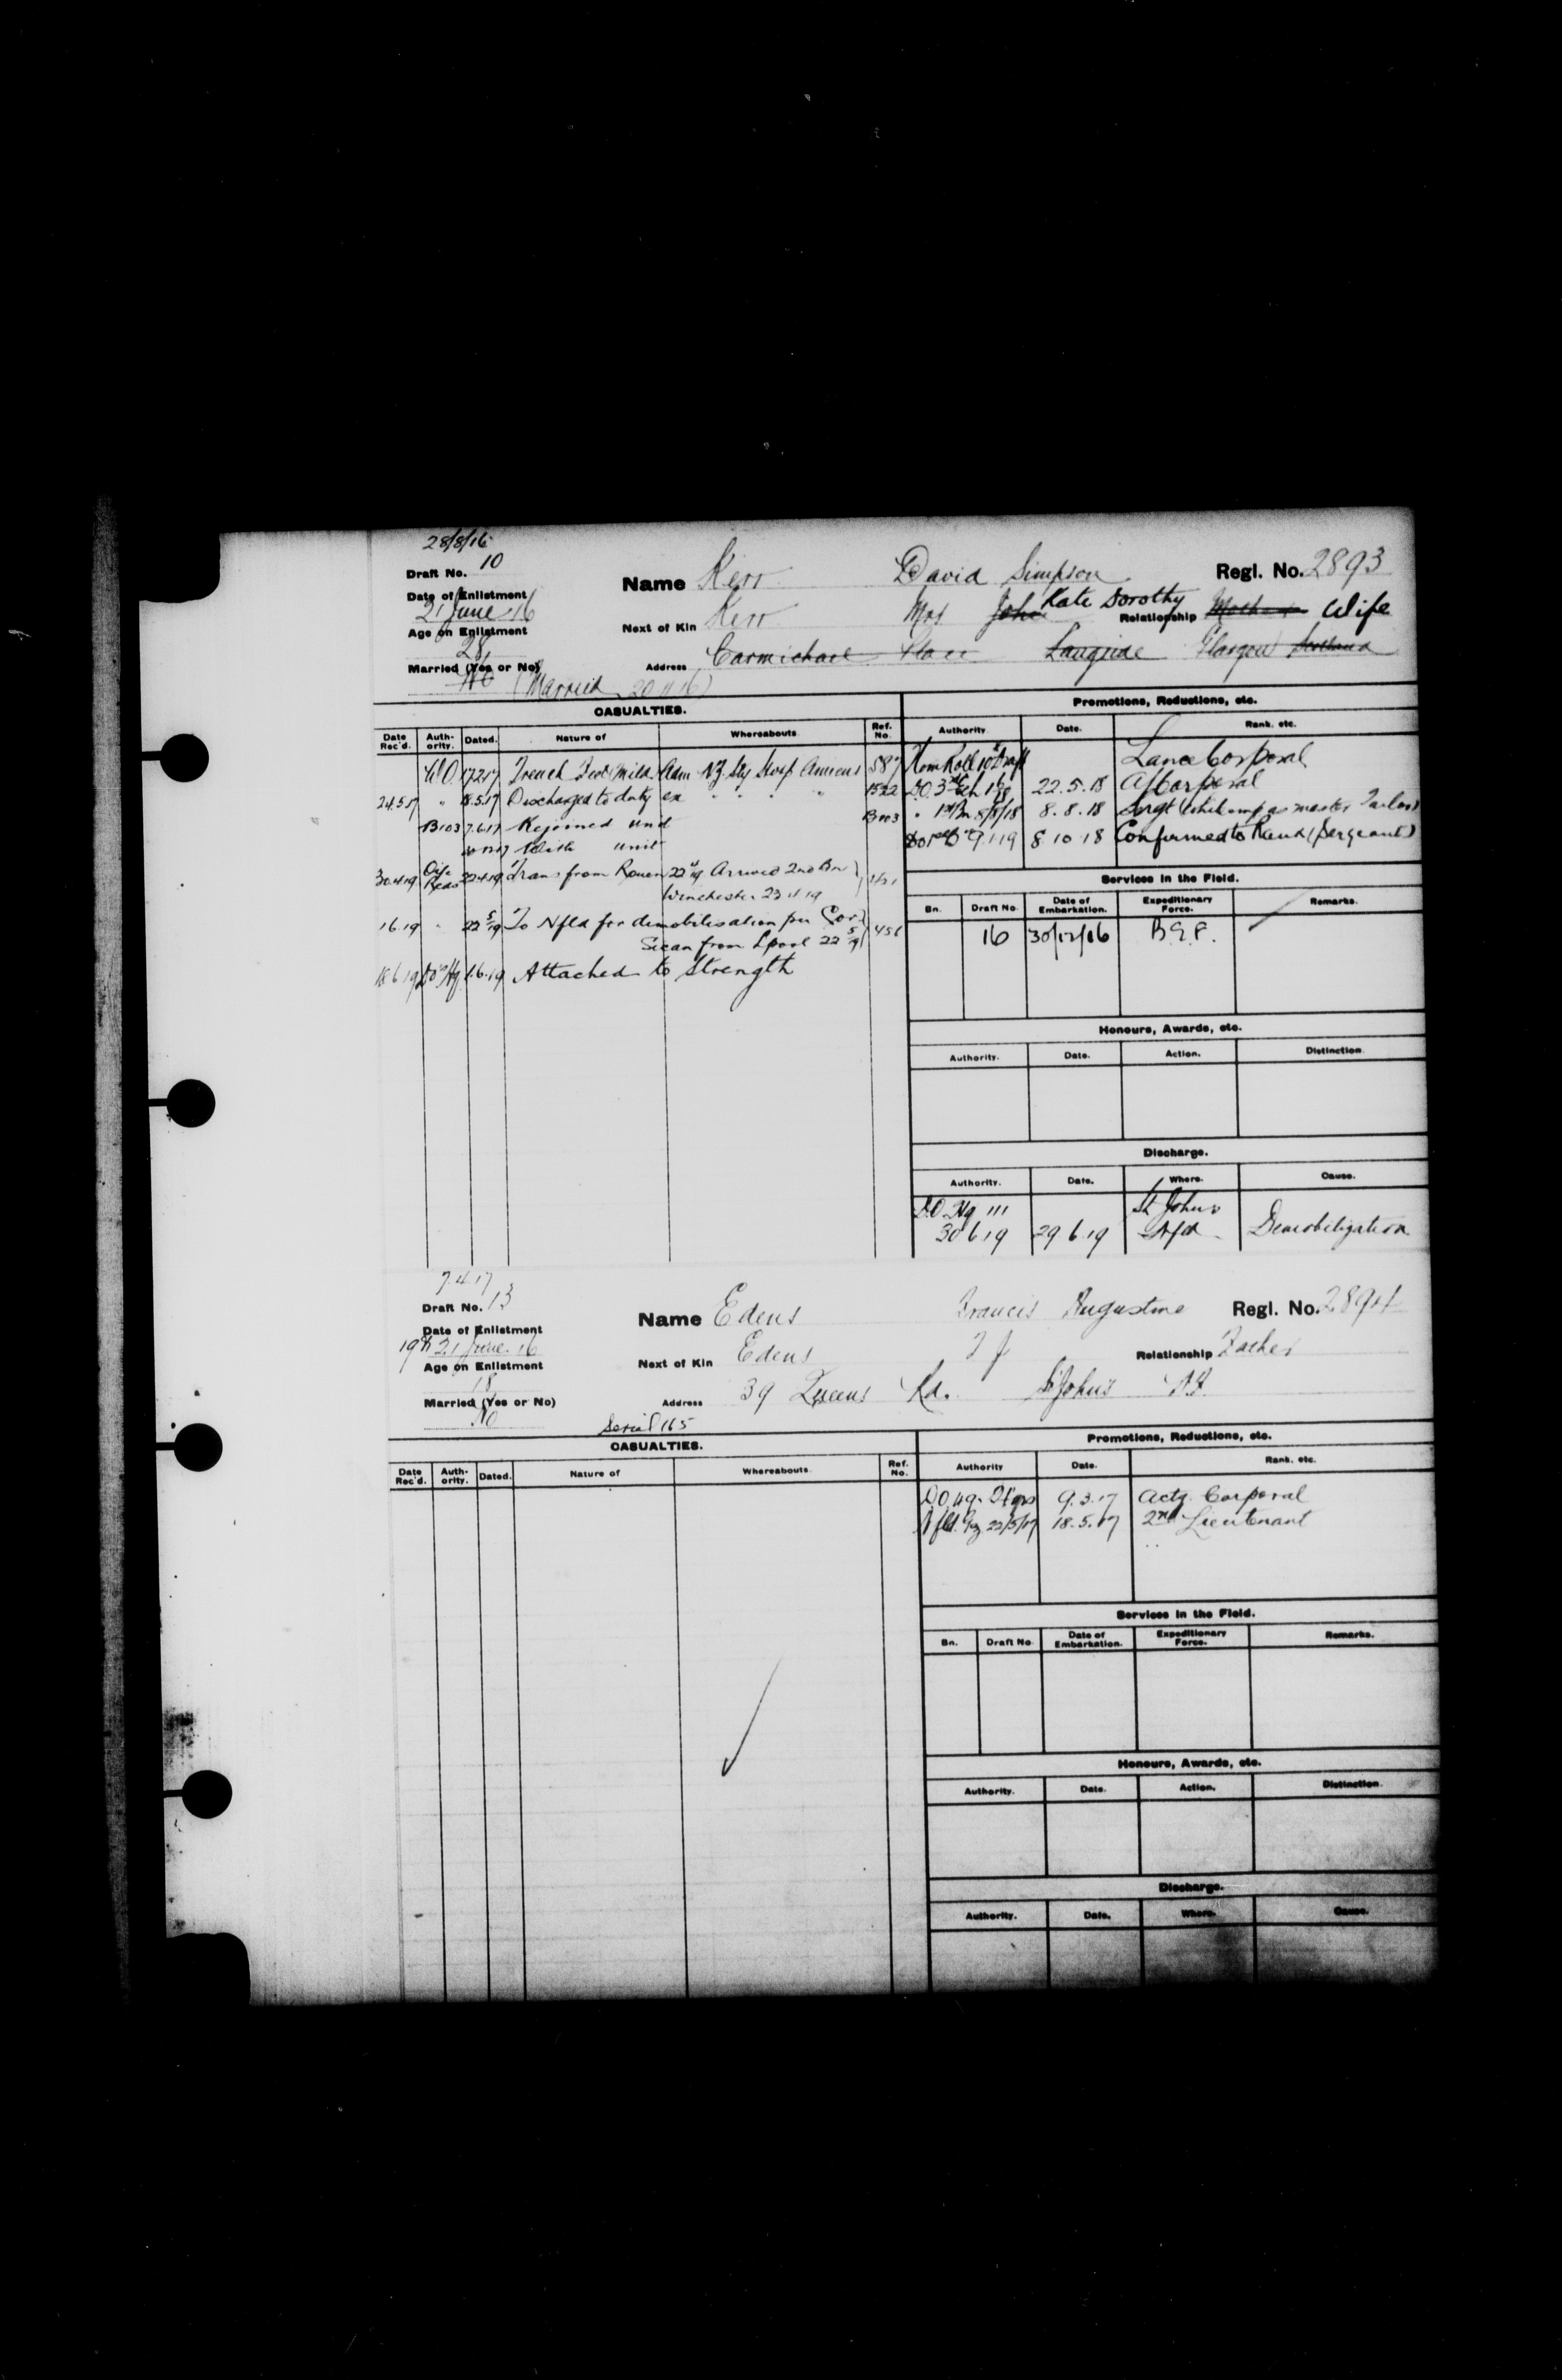 28/8/16
Draft No. 10
Name Kerr David Simpson Regl. No. 2893
Date of Enlistment
21 June 16
Next of Kin Kerr Mrs John Kate Dorothy Relationship Mother Wife
Age on Enlistment
28
Address Carmichael Place Langside Glasgow Scotland
Married (Yes or No)
No (Married 20 11 16)
CASUALTIES.
Promotions, Reductions, etc.
Date Rec'd. Auth-ority. Dated. Nature of Whereabouts Ref. No. Authority. Date. Rank, etc.
WO 17217 Trench Feet Mild Adm NZ Sty Hosp Amiens 587 Nom Roll 10th Draft Lance Corporal
24.5.17 " 18.5.17 Discharged to duty ex " " " " 1522 D.O. 3rd Ech 22.5.18 A/Corporal
B103 7.6.17 Rejoined unit B103 " 1st Bn 8/8/18 8.8.18 Sergt (whilst emp as master Tailor)
With unit 9.1.19 8.10.18 Confirmed to Rank (Sergeant)
30.4.19 22.4.19 Trans from Rouen 22 4 19 Arrived 2nd Bn
Winchester 23 4 19
Services in the Field.
Bn. Draft No. Date of Embarkation. Expeditionary Force. Remarks.
1 6 19 " 22 5/19 To Nfld for demobilisation per Cor 456
sican from Lpool 22 5/19
16 30/12/16 B.E.F.
18 6 19 DO Hq 1.6.19 Attached to Strength
Honours, Awards, etc.
Authority. Date. Action. Distinction.
Discharge.
Authority. Date. Where. Cause.
D.O Hq 111 St Johns
30 6 19 29 6 19 Nfld Demobilization
7.4.17
Draft No. 13
Name Edens Francis Augustine Regl. No. 2894
Date of Enlistment
19th 21 June 16
Next of Kin Edens T J Relationship Father
Age on Enlistment
18
Address 39 Queens Rd. St Johns N.F.
Married (Yes or No)
No
Serial 165
CASUALTIES.
Promotions, Reductions, etc.
Date Rec'd. Auth-ority. Dated. Nature of Whereabouts Ref. No. Authority Date. Rank, etc.
DO 49. 9.3.17 Actg. Corporal
Nfld. Gaz 22/5/17 18.5.17 2nd Lieutenant
Services in the Field.
Bn. Draft No. Date of Embarkation. Expeditionary Force. Remarks.
Honours, Awards, etc.
Authority. Date. Action. Distinction.
Discharge.
Authority. Date. Where. Cause.